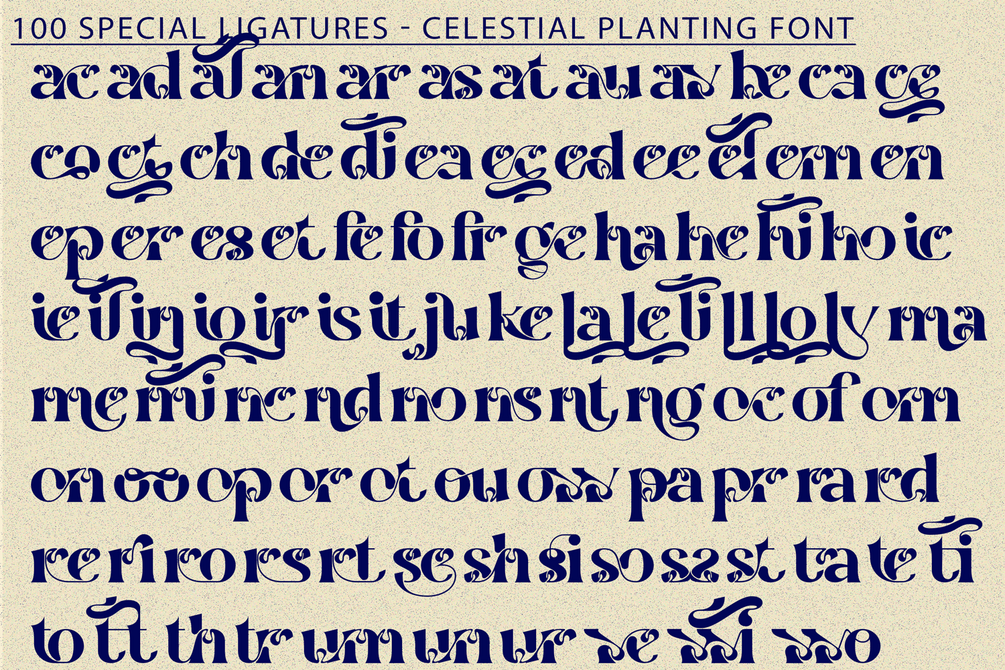 100 SPECIAL LIGATURES - CELESTIAL PLANTING FONT
ac ad al an ar as at au ay be ca ce
co ct ch de di ea ec ed ee el em en
ep er es et fe fo fr ge ha he hi ho ic
ie il in io ir is it ju ke la le li ll lo ly ma
me mi nc nd no ns nt ng oc of om
on oo op or ot ou ow pa pr ra rd
re ri ro rs rt se sh si so ss st ta te ti
to tt th tr um un ur ve wi wo